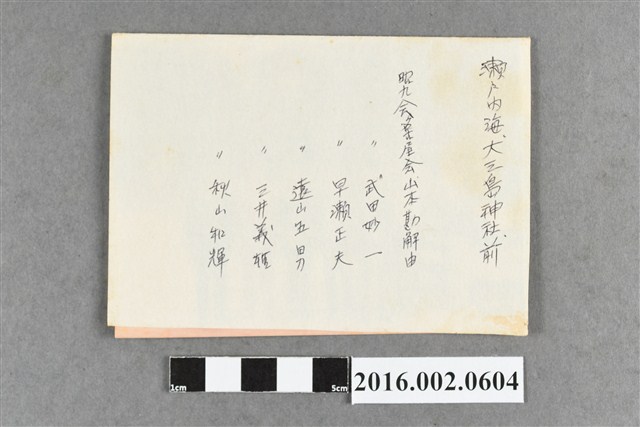 瀬戸内海、大三島神社前
昭九会、薬座会、山本勘解由
〃 武田妙一
〃 早瀬正夫
〃 遠山五男
〃 三井義雄
〃 秋山和輝
1cm 5cm
2016.002.0604